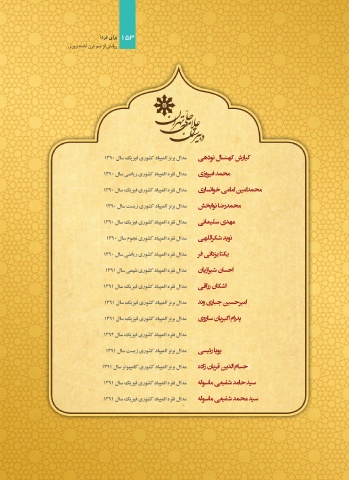 ۱۵۳
برای فردا
روایتی از نیم قرن اندیشه‌ورزی
دبیرستان علامه حلی تهران
کیارش کهنسال نودهی مدال برنز المپیاد کشوری فیزیک، سال ۱۳۹۰
محمد فیروزی مدال نقره المپیاد کشوری ریاضی سال ۱۳۹۰
محمدامین امامی خوانساری مدال نقره المپیاد کشوری فیزیک، سال ۱۳۹۰
محمدرضا نوابخش مدال برنز المپیاد کشوری زیست سال ۱۳۹۰
مهدی سلیمانی مدال نقره المپیاد کشوری فیزیک، سال ۱۳۹۰
نوید شکراللهی مدال نقره المپیاد کشوری نجوم سال ۱۳۹۰
یکتا یزدانی فر مدال نقره المپیاد کشوری ریاضی سال ۱۳۹۰
احسان شیرازیان مدال نقره المپیاد کشوری شیمی سال ۱۳۹۱
اشکان رزاقی مدال نقره المپیاد کشوری فیزیک، سال ۱۳۹۱
امیرحسین جباری وند مدال برنز المپیاد کشوری فیزیک، سال ۱۳۹۱
پدرام اکبریان ساروی مدال برنز المپیاد کشوری فیزیک، سال ۱۳۹۱
مدال نقره المپیاد کشوری فیزیک، سال ۱۳۹۲
پویا رئیسی مدال برنز المپیاد کشوری زیست سال ۱۳۹۱
حسام‌الدین قربان زاده مدال برنز المپیاد کشوری کامپیوتر سال ۱۳۹۱
سید حامد شفیعی ماسوله مدال نقره المپیاد کشوری فیزیک، سال ۱۳۹۱
سید محمد شفیعی ماسوله مدال نقره المپیاد کشوری فیزیک، سال ۱۳۹۱